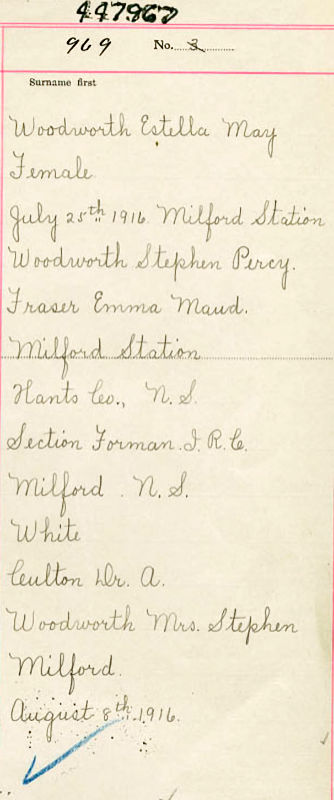 447967
969 No. 3
Surname first
Woodworth Estella May
Female
July 25th 1916. Milford Station
Woodworth Stephen Percy.
Fraser Emma Maud.
Milford Station
Hants Co., N. S.
Section Forman. I. R. C.
Milford . N. S.
White
Culton Dr. A.
Woodworth Mrs. Stephen
Milford.
August 8th 1916.